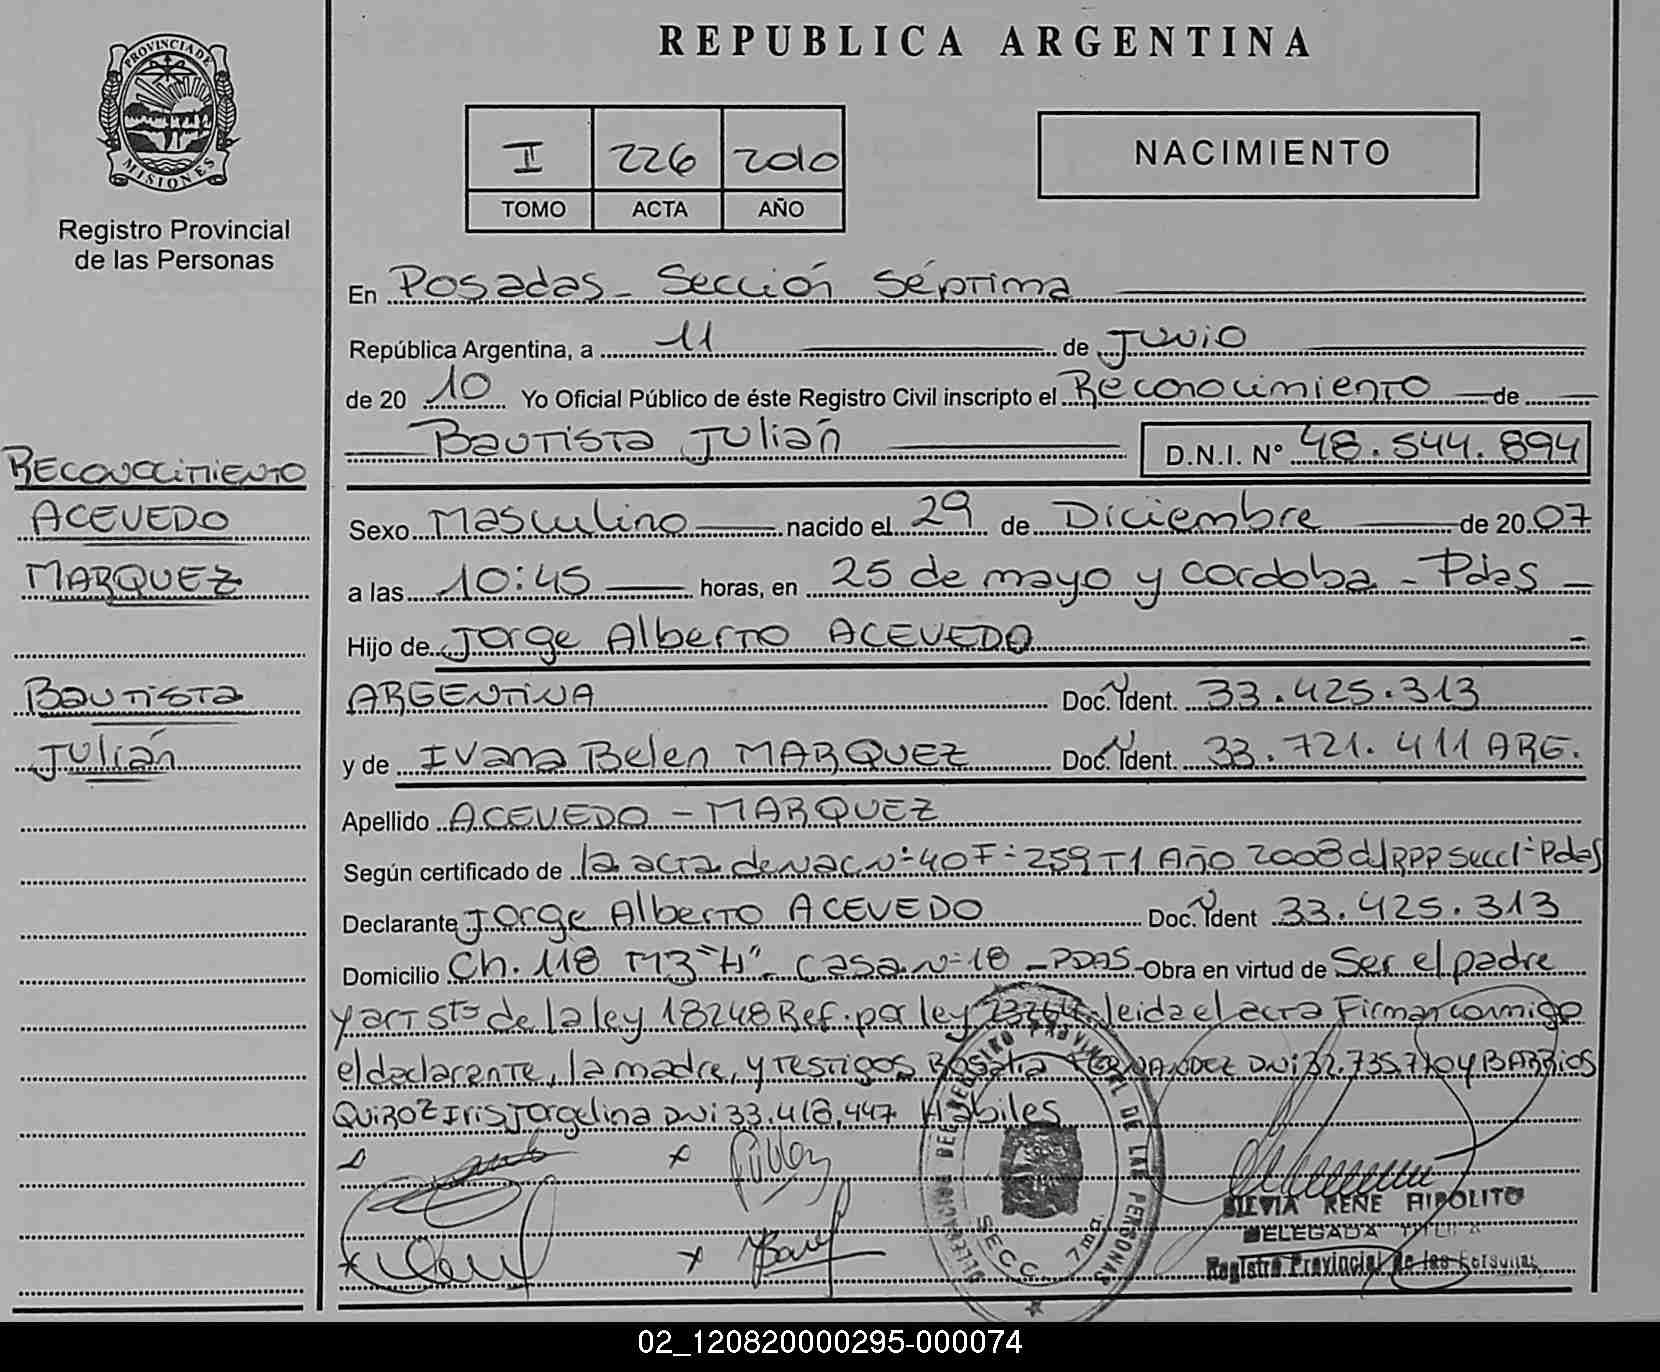 PROVINCIA DE
MISIONES
Registro Provincial
de las Personas
RECONOCIMIENTO
ACEVEDO
MARQUEZ
Bautista
Julián
REPUBLICA ARGENTINA
I 226 2010
TOMO ACTA AÑO
NACIMIENTO
En Posadas - Sección Séptima
República Argentina, a 11 de Junio
de 20 10 Yo Oficial Público de éste Registro Civil inscripto el Reconocimiento de
Bautista Julián D.N.I. N° 48.544.894
Sexo Masculino nacido el 29 de Diciembre de 20 07
a las 10:45 horas, en 25 de mayo y cordoba - Pdas
Hijo de Jorge Alberto ACEVEDO
ARGENTINA Doc. Ident. 33.425.313
y de Ivana Belen MARQUEZ Doc. Ident. 33.721.411 ARG.
Apellido ACEVEDO - MARQUEZ
Según certificado de la acta de nac N° 40 F° 259 T1 Año 2008 d/RPP Secc 1° Pdas
Declarante Jorge Alberto ACEVEDO Doc. Ident 33.425.313
Domicilio Ch. 118 Mz "H" - casa N° 18 - PDAS - Obra en virtud de Ser el padre
y art 5to de la ley 18248 Ref. por ley 23264 leida el acta Firman conmigo
el declarante, la madre, y testigos Rosalia DNI 32.735.710 y BARRIOS
QUIROZ Iris Jorgelina DNI 33.418.447 Habiles
DELEGACION DEL REGISTRO PROVINCIAL DE LAS PERSONAS
SECC. 7ma
SILVIA RENE HIPOLITO
DELEGADA
Registro Provincial de las Personas
02_120820000295-000074